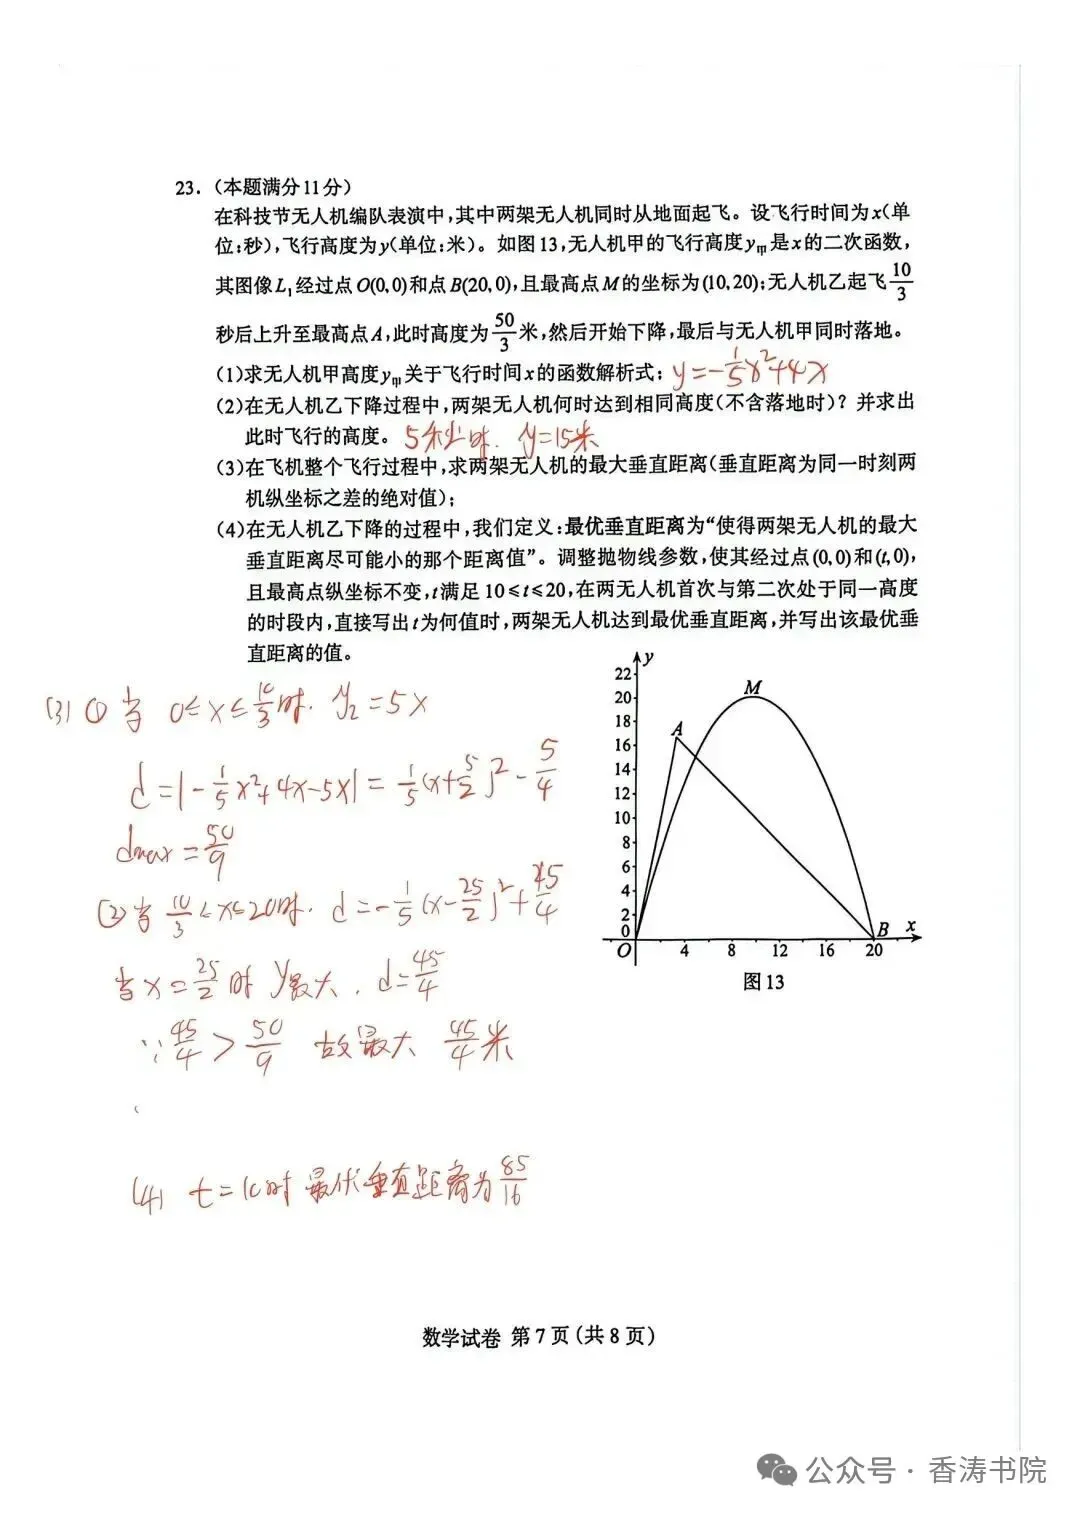 23.(本题满分11分)
在科技节无人机编队表演中,其中两架无人机同时从地面起飞。设飞行时间为x(单
位:秒),飞行高度为y(单位:米)。如图13,无人机甲的飞行高度y甲是x的二次函数,
其图像L₁经过点O(0,0)和点B(20,0),且最高点M的坐标为(10,20);无人机乙起飞10/3
秒后上升至最高点A,此时高度为50/3米,然后开始下降,最后与无人机甲同时落地。
(1)求无人机甲高度y甲关于飞行时间x的函数解析式; y=-1/5x²+4x
(2)在无人机乙下降过程中,两架无人机何时达到相同高度(不含落地时)?并求出
此时飞行的高度。 5秒时. y=15米
(3)在飞机整个飞行过程中,求两架无人机的最大垂直距离(垂直距离为同一时刻两
机纵坐标之差的绝对值);
(4)在无人机乙下降的过程中,我们定义:最优垂直距离为“使得两架无人机的最大
垂直距离尽可能小的那个距离值”。调整抛物线参数,使其经过点(0,0)和(t,0),
且最高点纵坐标不变,t满足10≤t≤20,在两无人机首次与第二次处于同一高度
的时段内,直接写出t为何值时,两架无人机达到最优垂直距离,并写出该最优垂
直距离的值。
(3) ① 当 0≤x≤10/3时. y₂=5x
d=|-1/5x²+4x-5x|=1/5(x+5/2)²-5/4
dmax=50/9
② 当 10/3<x≤20时. d=-1/5(x-25/2)²+45/4
当x=25/2时 y最大. d=45/4
∵45/4>50/9 故最大 45/4米
(4) t=10时 最优垂直距离为85/16
y
22
20
18
16
14
12
10
8
6
4
2
0
M
A
B
x
O
4
8
12
16
20
图13
数学试卷 第7页(共8页)
公众号·香涛书院